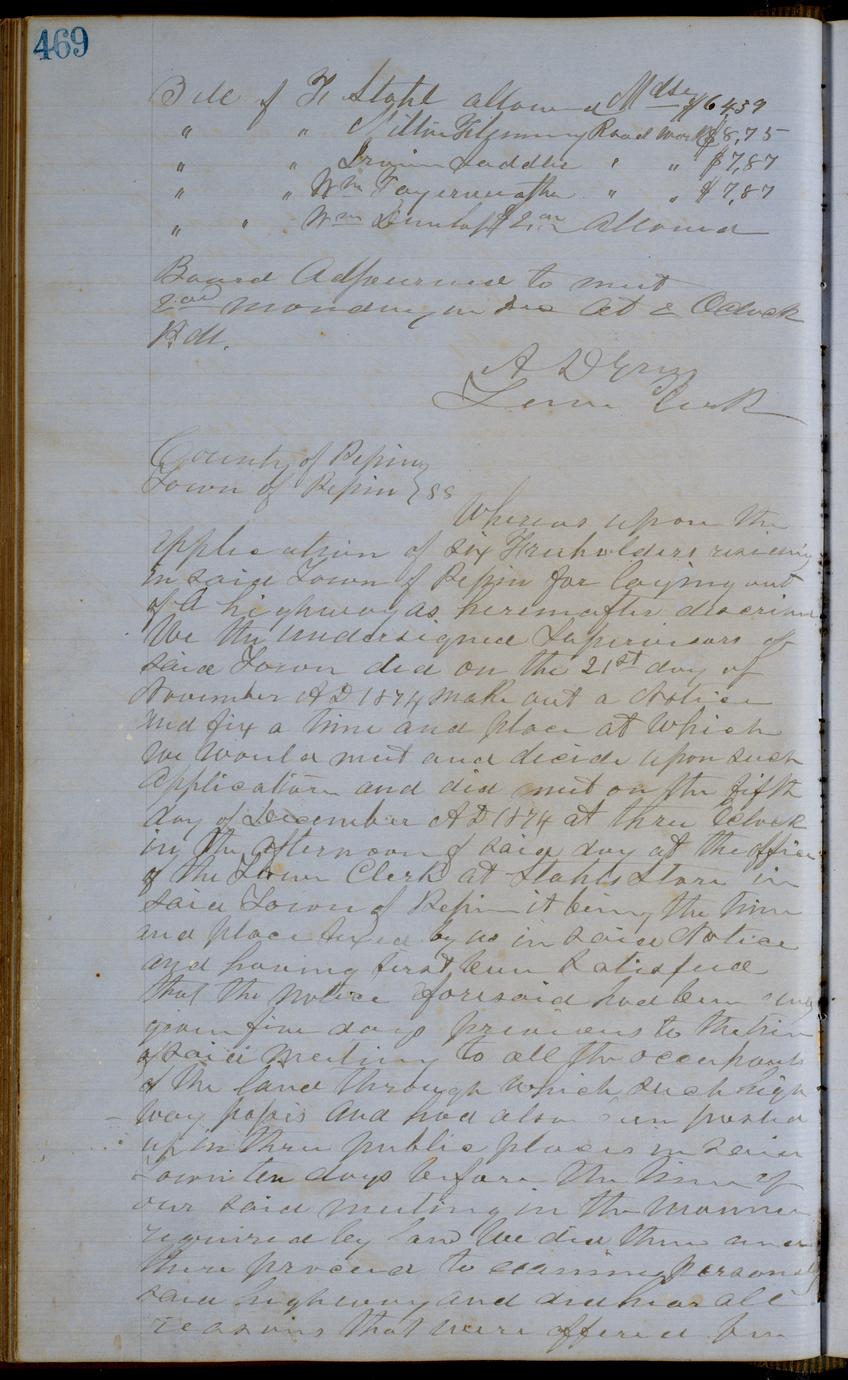 469
Bill of F Stahl allowed Mdse $64,39
" " Milton Fleming Road Work $8,75
" " Saddler " " $7,87
" " Wm Fayerweather " " $7,87
" " Wm Dunlap $2,00 allowed
Board Adjourned to meet
2nd Monday in Dec At 2 Oclock
P.M.
A D Gray
Town Clerk
County of Pepin
Town of Pepin } SS
Whereas upon the
application of six Freeholders residing
in said Town of Pepin for laying out
of A highway as hereinafter
We the undersigned Supervisors of
said Town did on the 21st day of
November AD 1874 make out a Notice
and fix a time and place at which
we would meet and decide upon such
Application and did meet on the fifth
day of December AD 1874 at three Oclock
in the afternoon of said day at the office
of the Town Clerk at Stahls Store in
said Town of Pepin it being the time
and place fixed by us in said Notice
and having first been satisfied
that the notice aforesaid had been
given five days previous to the time
of said Meeting to all the occupants
of the land through which such high
way passes and had also been posted
up in three public places in said
Town ten days before the time of
our said meeting in the manner
required by law We did then and
there proceed to examine personally
said highway and did hear all
reasons that were offered for